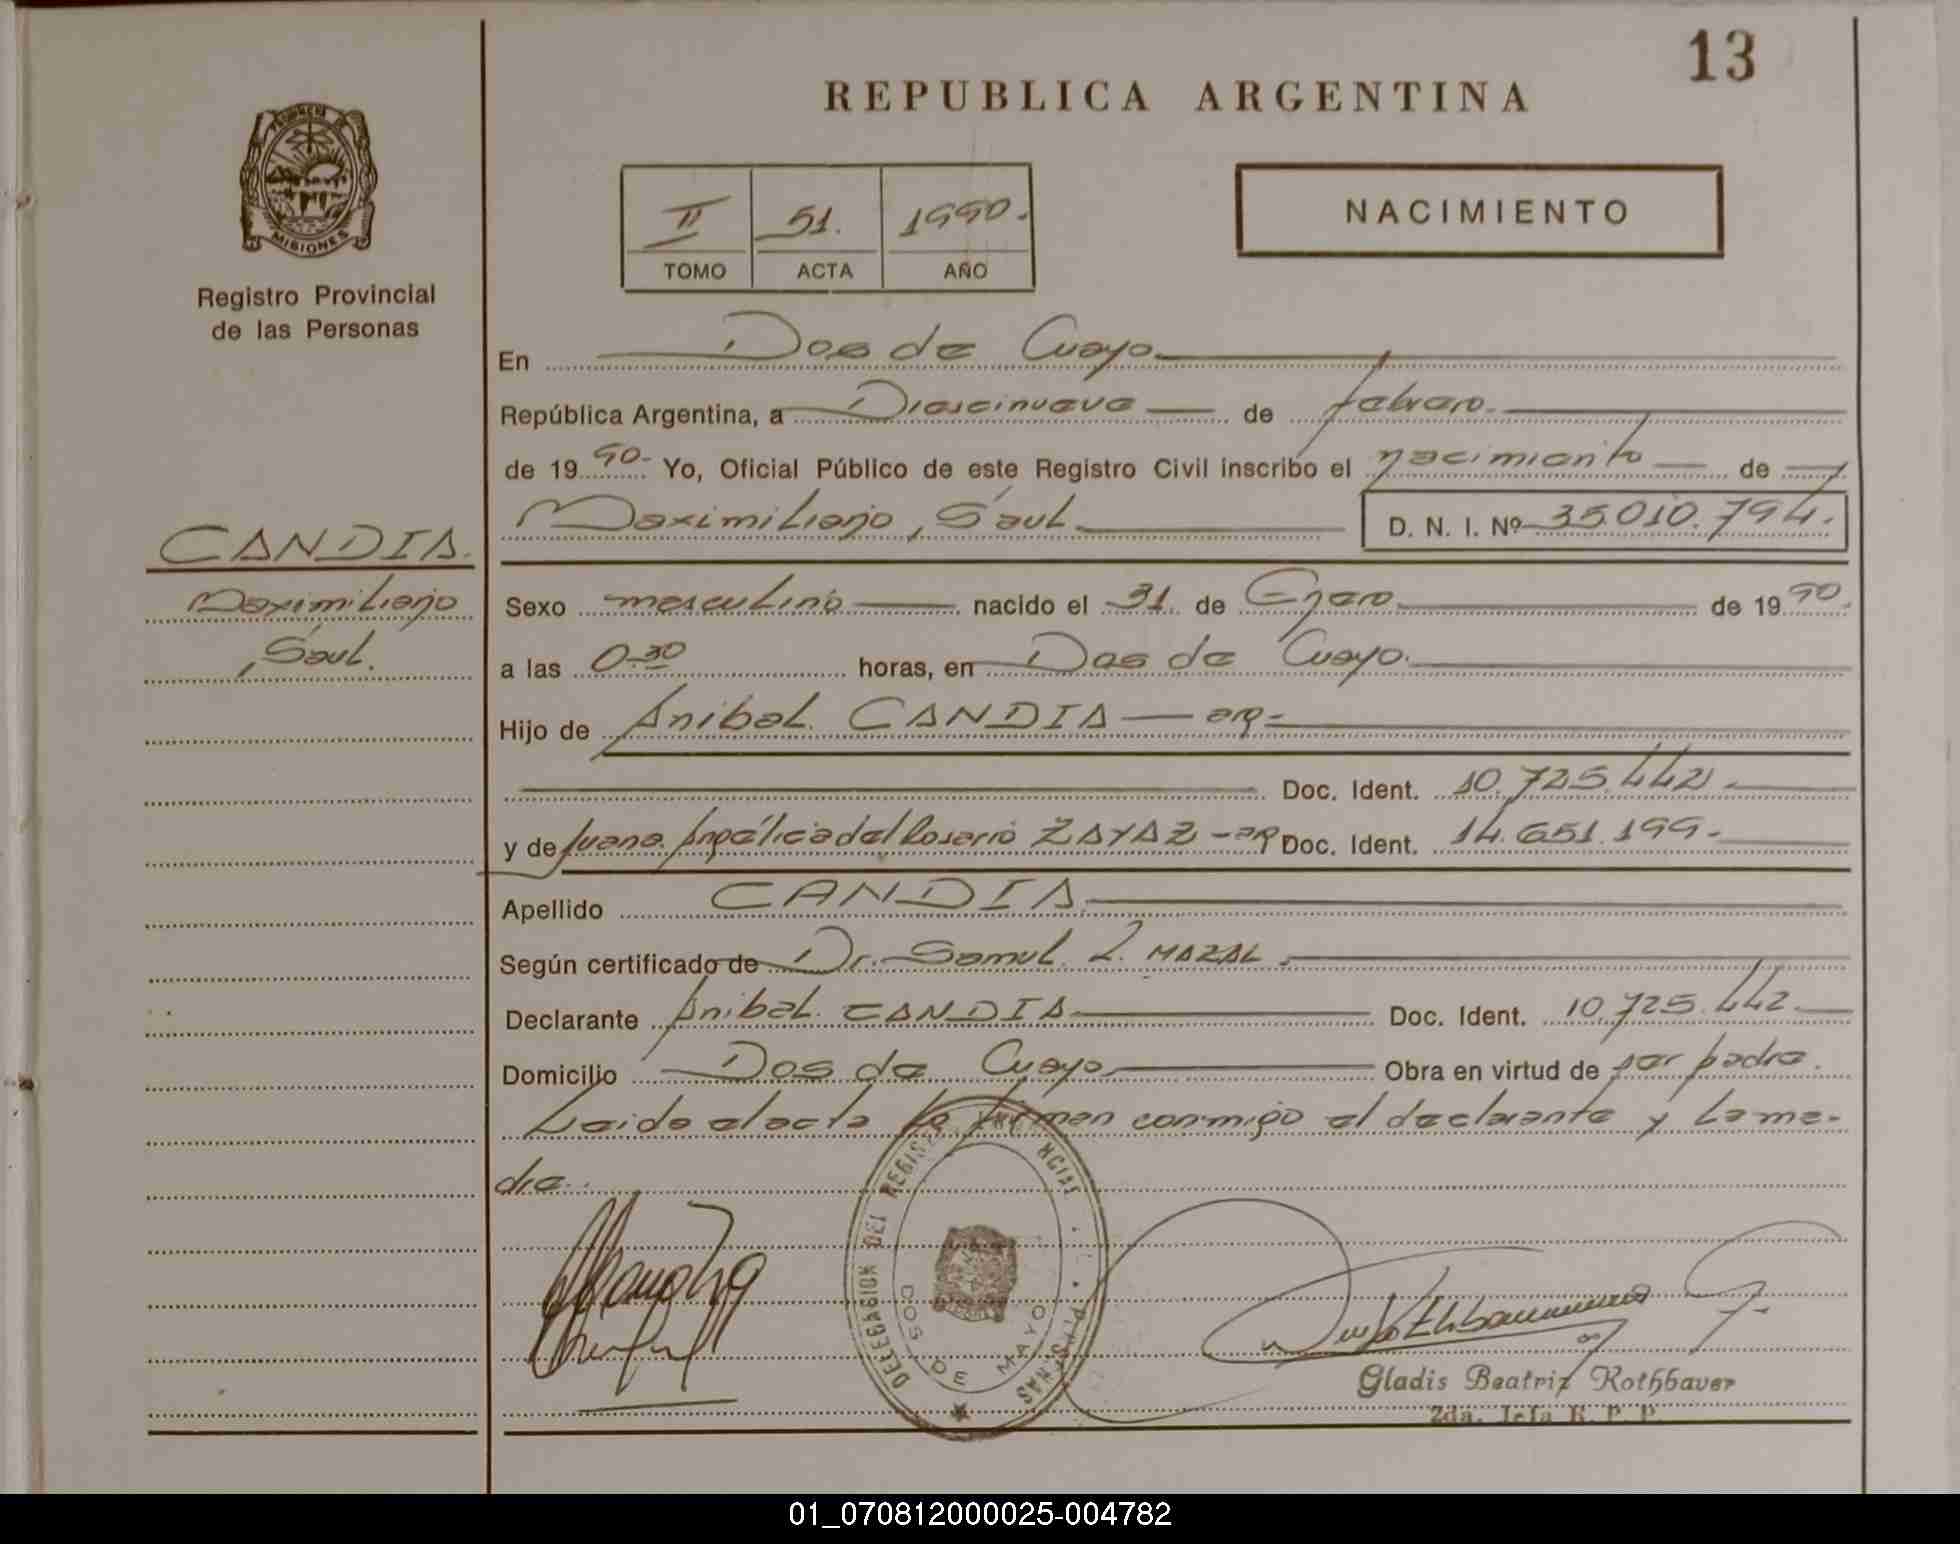 13
REPUBLICA ARGENTINA
PROVINCIA DE
MISIONES
Registro Provincial
de las Personas
II 51. 1990.
TOMO ACTA AÑO
NACIMIENTO
En Dos de Mayo
República Argentina, a Diescinueve de febrero.
de 19 90- Yo, Oficial Público de este Registro Civil inscribo el nacimiento de
Maximiliano, Saul D. N. I. Nº 35.010.794.
CANDIA.
Maximiliano
, Saul.
Sexo masculino nacido el 31 de Enero de 19 90.
a las 0.30 horas, en Dos de Mayo.
Hijo de Anibal CANDIA — arg-
Doc. Ident. 10.725.442
y de Juana Angélica del Rosario ZAYAZ - arg Doc. Ident. 14.651.199-
Apellido CANDIA
Según certificado de Dr. Samul L. MAZAL
Declarante Anibal CANDIA Doc. Ident. 10.725.442
Domicilio Dos de Mayo Obra en virtud de ser padre.
Leida el acta la firman conmigo el declarante y la ma-
dre.
DELEGACION DEL REGISTRO
DOS DE MAYO
Gladis Beatriz Rothbauer
2da. Jefa R. P. P.
01_070812000025-004782